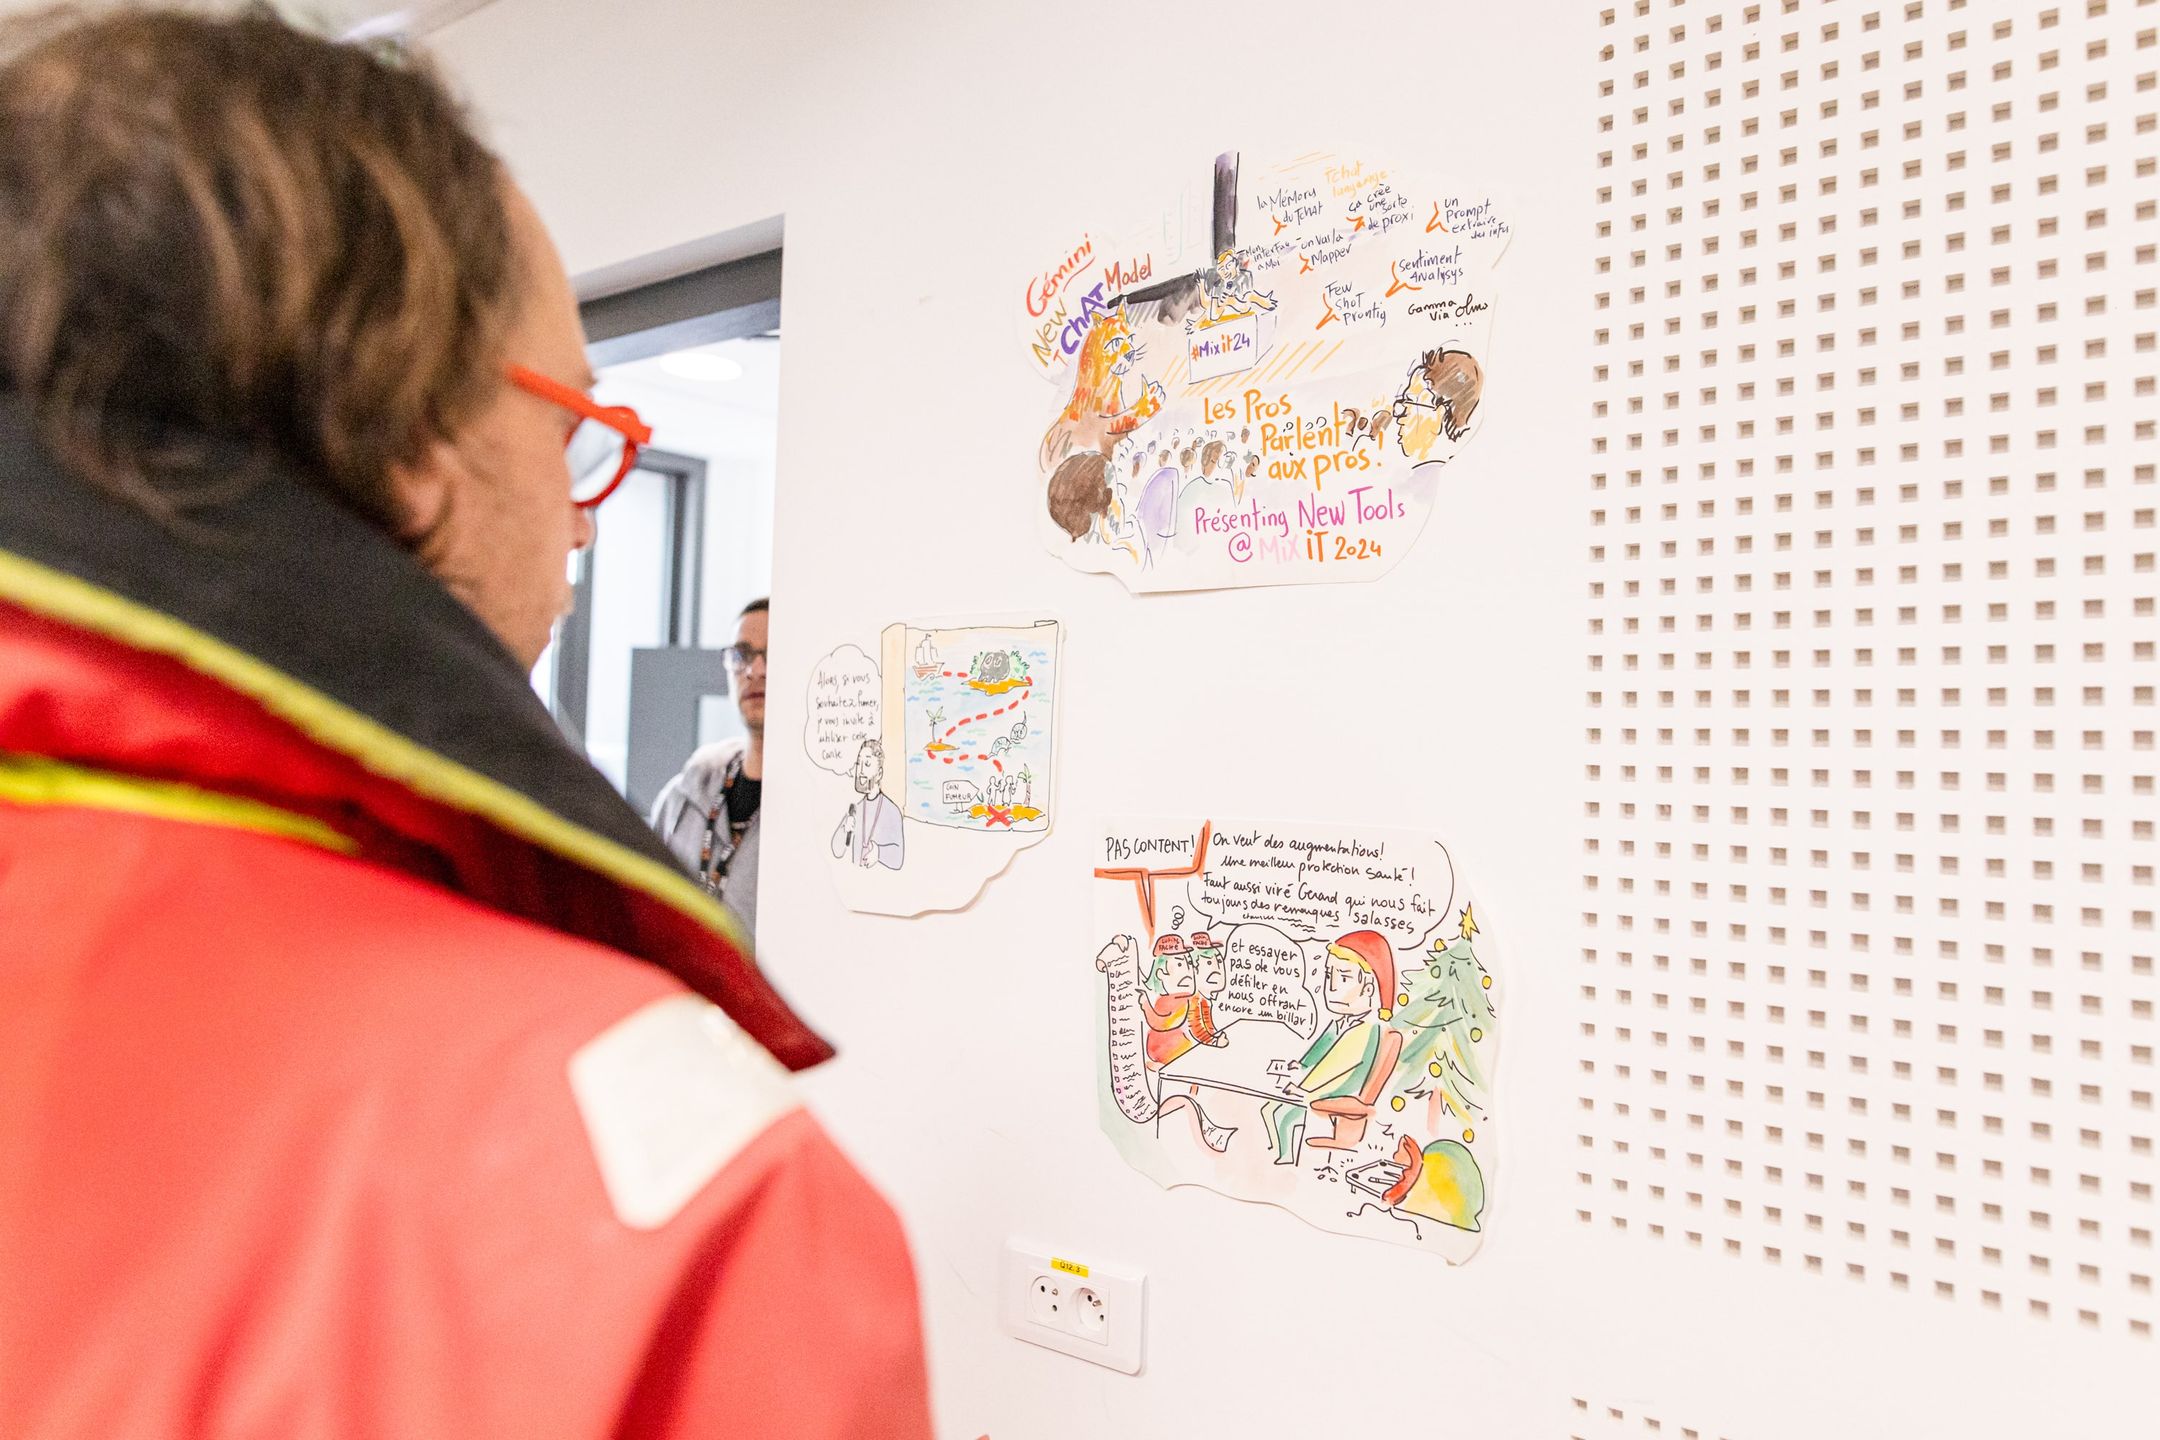 Gémini
New
TchAT Model
la Mémory
du TchAt
Tchat
langange
ça crée
une sorte
de proxi
un
Prompt
extraire
des infos
Mon
interface
à Moi
on va la
Mapper
Sentiment
Analysys
Few
Shot
promtig
Gamma
via
...
#Mixit24
Les Pros
Parlent
aux pros !
Présenting New Tools
@ MiX iT 2024
Alors, si vous
souhaitez fumer,
je vous invite à
utiliser cette
carte
COIN
FUMEUR
PAS CONTENT!
On veut des augmentations!
Une meilleur protection santé!
Faut aussi viré Gérard qui nous fait
toujours des remarques salasses
et essayer
pas de vous
défiler en
nous offrant
encore un billar!
LUTIN
FACHÉ
LUTIN
FACHÉ
Q12.3